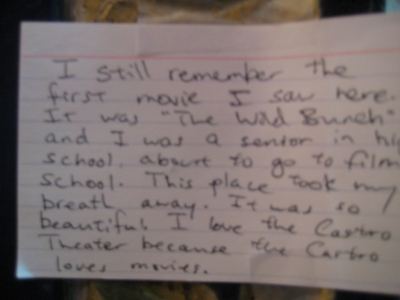 I still remember the
first movie I saw here.
It was "The Wild Bunch"
and I was a senior in hig
school. about to go to film
school. This place took my
breath away. It was so
beautiful. I love the Castro
Theater because the Castro
loves movies.